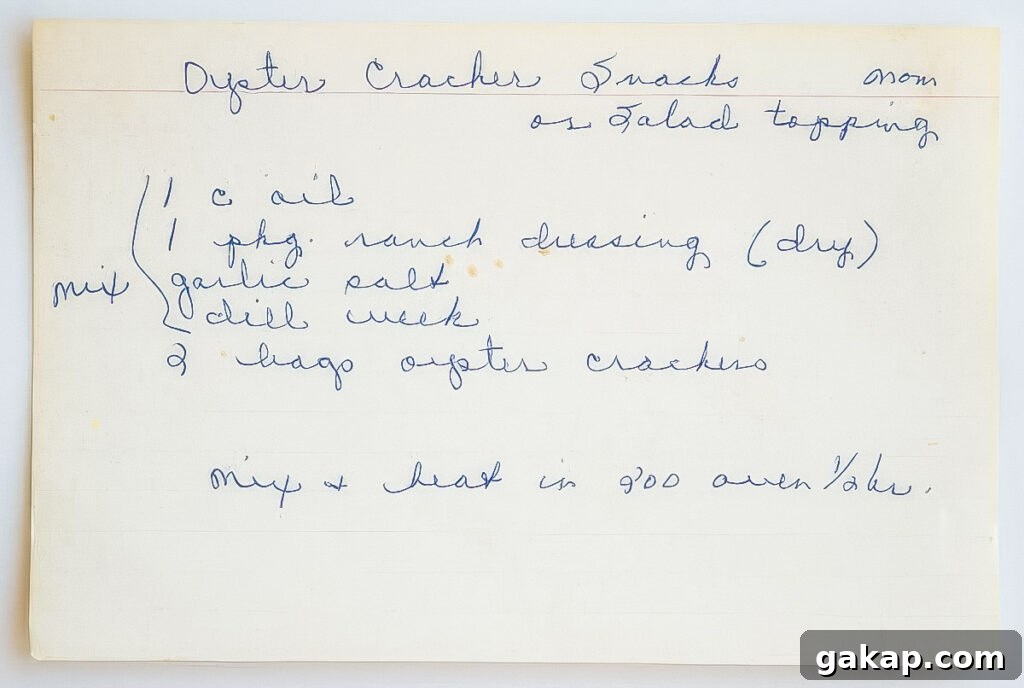 Oyster Cracker Snacks mom
or Salad topping
1 c oil
1 pkg. ranch dressing (dry)
mix garlic salt
dill week
2 bags oyster crackers
mix + heat in 200 oven 1/2 hr.
gakap.com